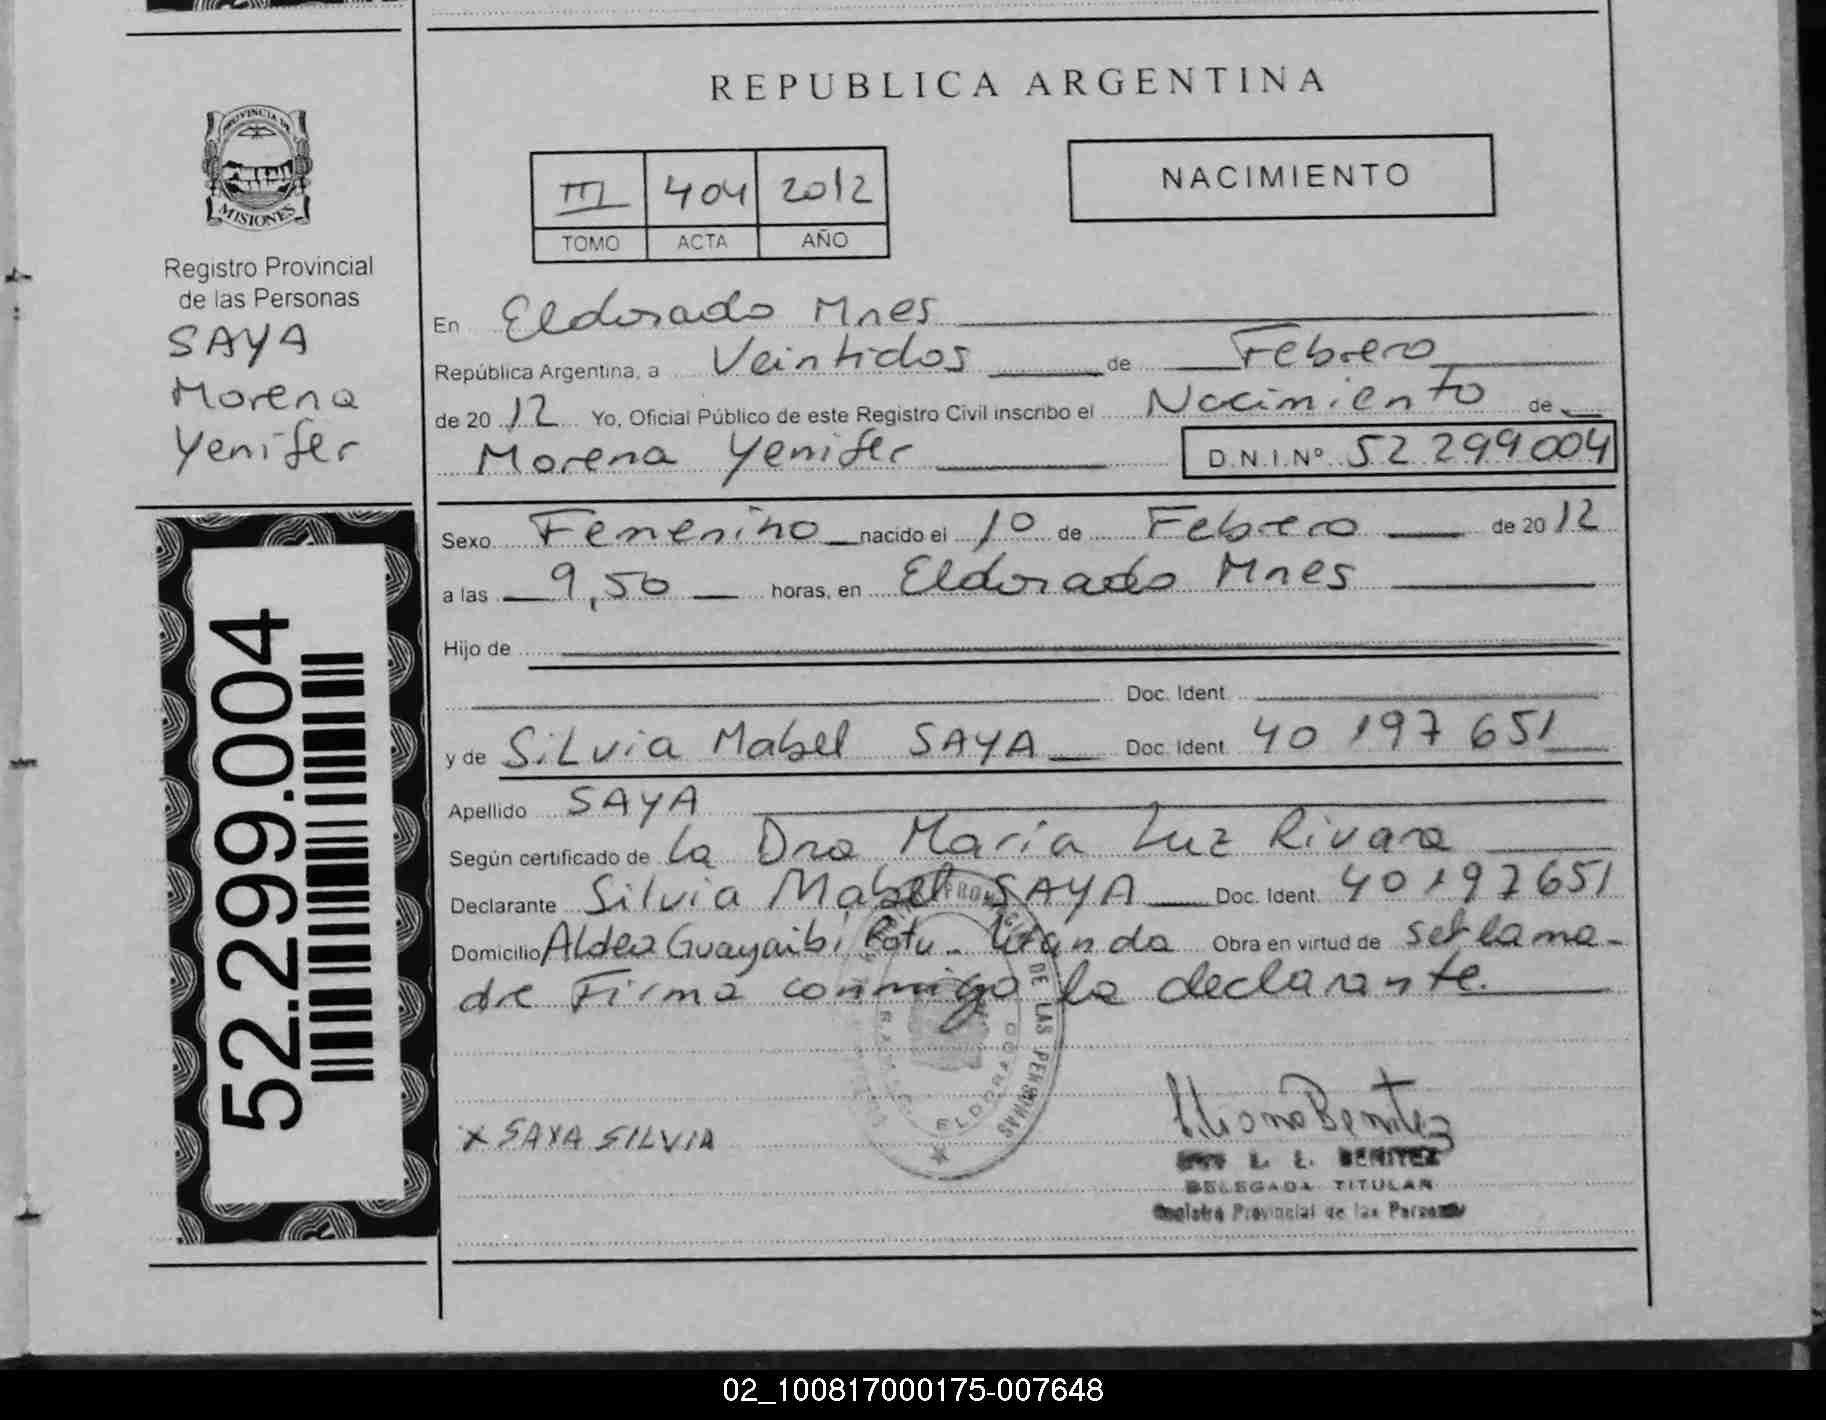 REPUBLICA ARGENTINA
PROVINCIA DE
MISIONES
Registro Provincial
de las Personas
SAYA
Morena
Yenifer
52.299.004
III 404 2012
TOMO ACTA AÑO
NACIMIENTO
En Eldorado Mnes
República Argentina, a Veintidos de Febrero
de 20 12 Yo, Oficial Público de este Registro Civil inscribo el Nacimiento de
Morena Yenifer D.N.I.Nº 52 299 004
Sexo Femenino nacido el 1º de Febrero de 20 12
a las 9,50 horas, en Eldorado Mnes
Hijo de
Doc. Ident
y de Silvia Mabel SAYA Doc. Ident. 40 197 651
Apellido SAYA
Según certificado de La Dra Maria Luz Rivara
Declarante Silvia Mabel SAYA Doc. Ident. 40 197 651
Domicilio Aldea Guayaibi, Obra en virtud de ser la ma-
dre Firma conmigo la declarante.
DE LAS PERSONAS
ELDORADO
x SAYA SILVIA
L. E. BENITEZ
DELEGADA TITULAR
Registro Provincial de las Personas
02_100817000175-007648